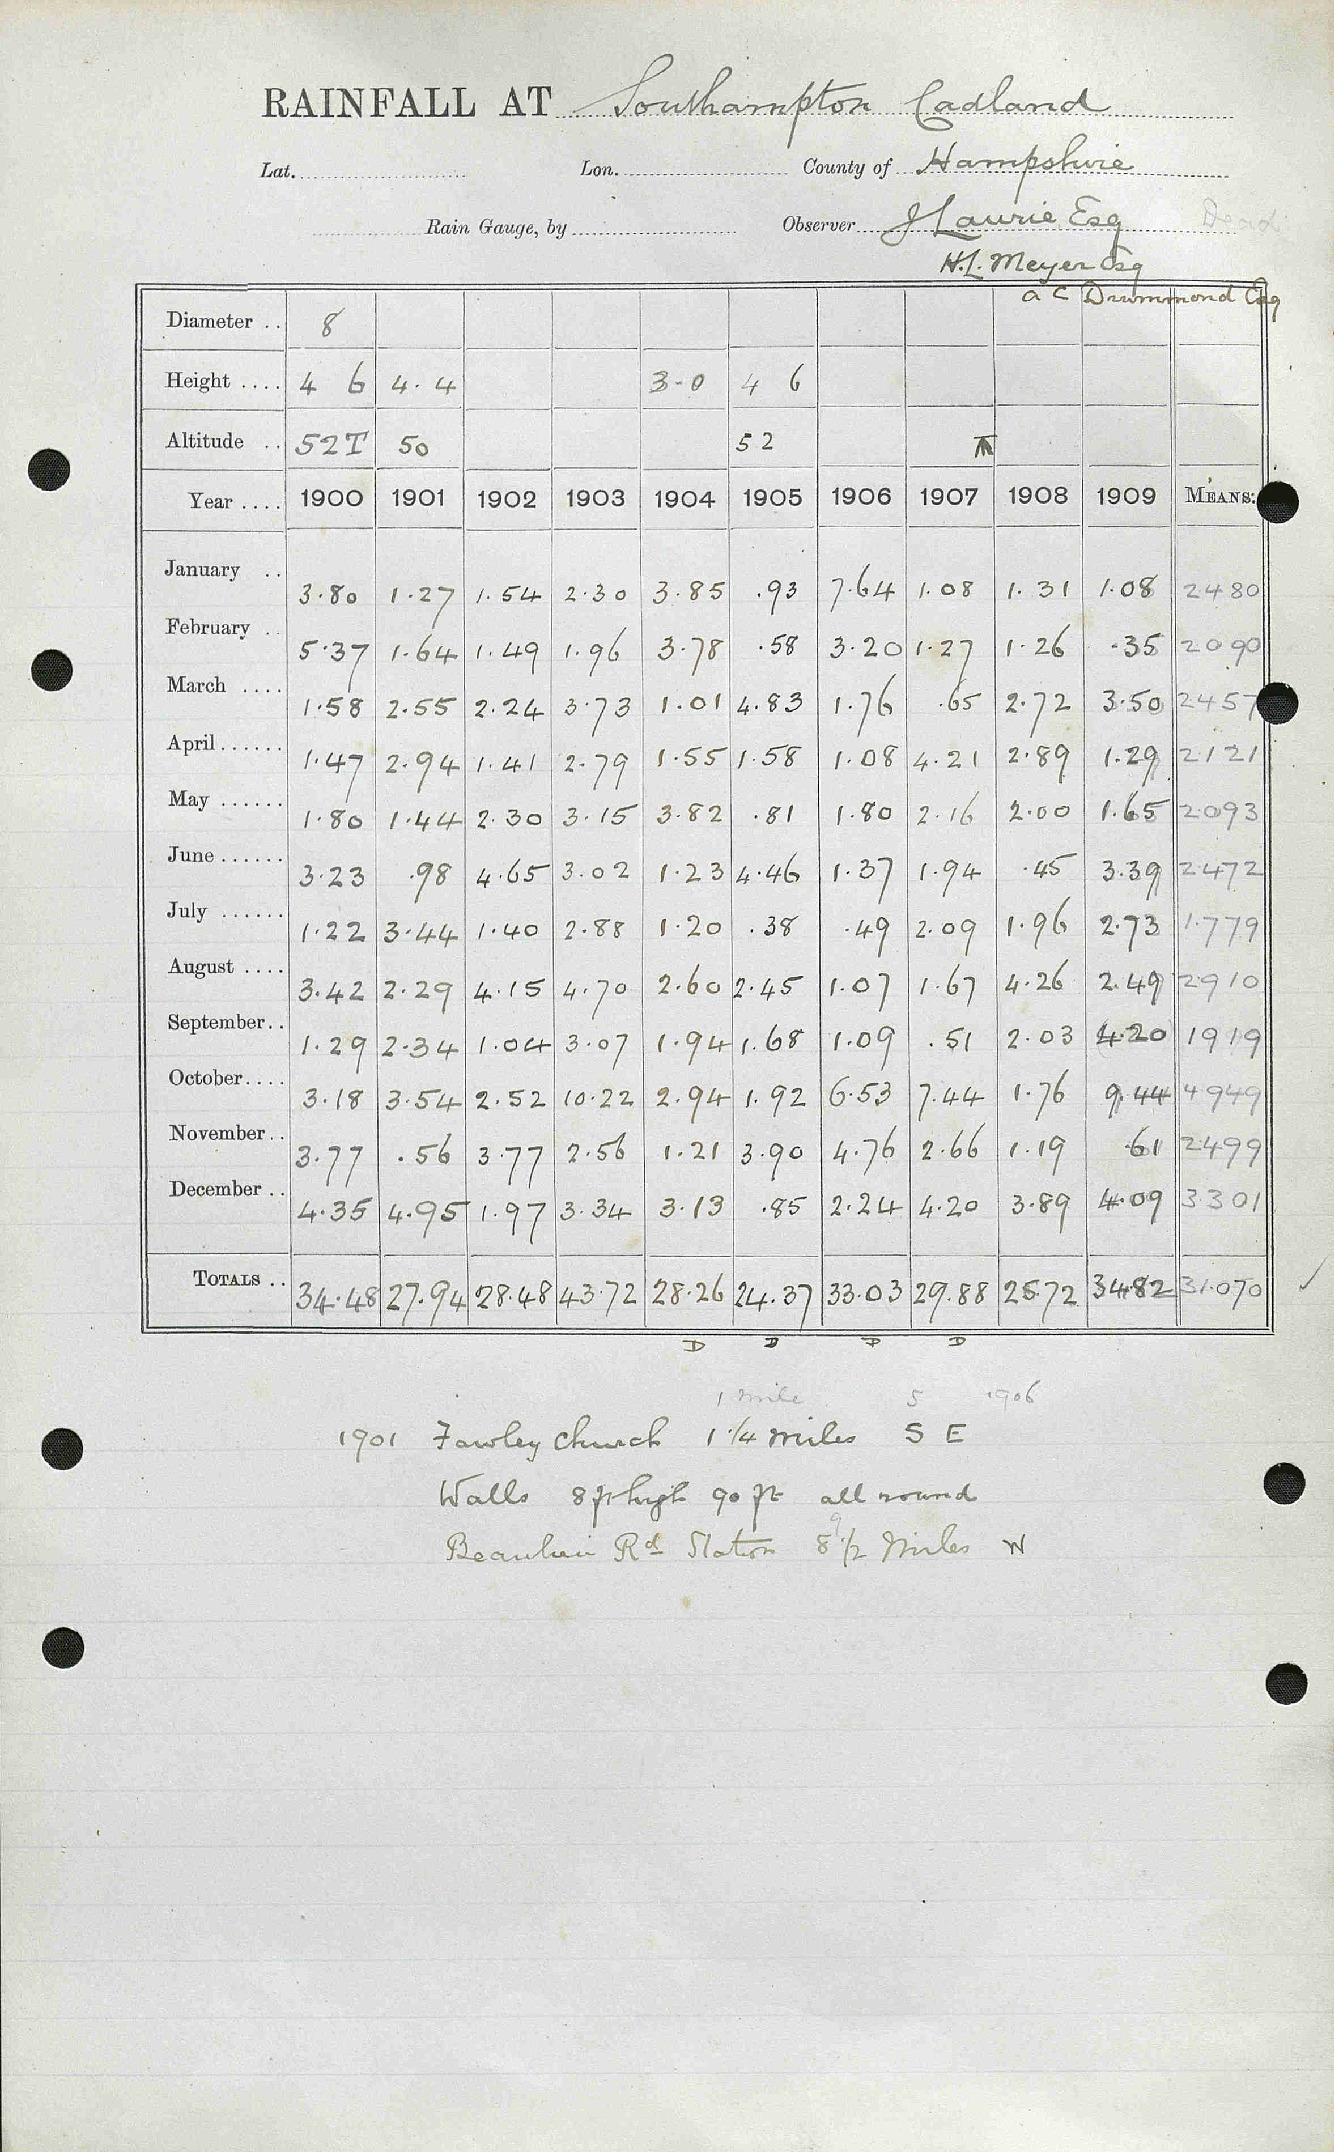 RAINFALL AT Southampton Cadland
Lat. Lon. County of Hampshire
Rain Gauge, by Observer J Laurie Esq Dead
H.L. Meyer Esq
A C Drummond Esq
Diameter .. 8
Height .... 4 6 4.4 3-0 4 6
Altitude .. 52T 50 52
Year .... 1900 1901 1902 1903 1904 1905 1906 1907 1908 1909 MEANS.
January .. 3.80 1.27 1.54 2.30 3.85 .93 7.64 1.08 1.31 1.08 2480
February .. 5.37 1.64 1.49 1.96 3.78 .58 3.20 1.27 1.26 .35 2090
March .... 1.58 2.55 2.24 3.73 1.01 4.83 1.76 .65 2.72 3.50 2457
April ...... 1.47 2.94 1.41 2.79 1.55 1.58 1.08 4.21 2.89 1.29 2121
May ...... 1.80 1.44 2.30 3.15 3.82 .81 1.80 2.16 2.00 1.65 2093
June ...... 3.23 .98 4.65 3.02 1.23 4.46 1.37 1.94 .45 3.39 2472
July ...... 1.22 3.44 1.40 2.88 1.20 .38 .49 2.09 1.96 2.73 1.779
August .... 3.42 2.29 4.15 4.70 2.60 2.45 1.07 1.67 4.26 2.49 2910
September.. 1.29 2.34 1.04 3.07 1.94 1.68 1.09 .51 2.03 4.20 1919
October.... 3.18 3.54 2.52 10.22 2.94 1.92 6.53 7.44 1.76 9.44 4949
November.. 3.77 .56 3.77 2.56 1.21 3.90 4.76 2.66 1.19 .61 2499
December .. 4.35 4.95 1.97 3.34 3.13 .85 2.24 4.20 3.89 4.09 3301
TOTALS .. 34.48 27.94 28.48 43.72 28.26 24.37 33.03 29.88 25.72 34.82 31.070
D D D D
1 mile S 1906
1901 Fawley Church 1 1/4 miles S E
Walls 8 ft high 90 ft all round
9
Beaulieu Rd Station 8 1/2 Miles W